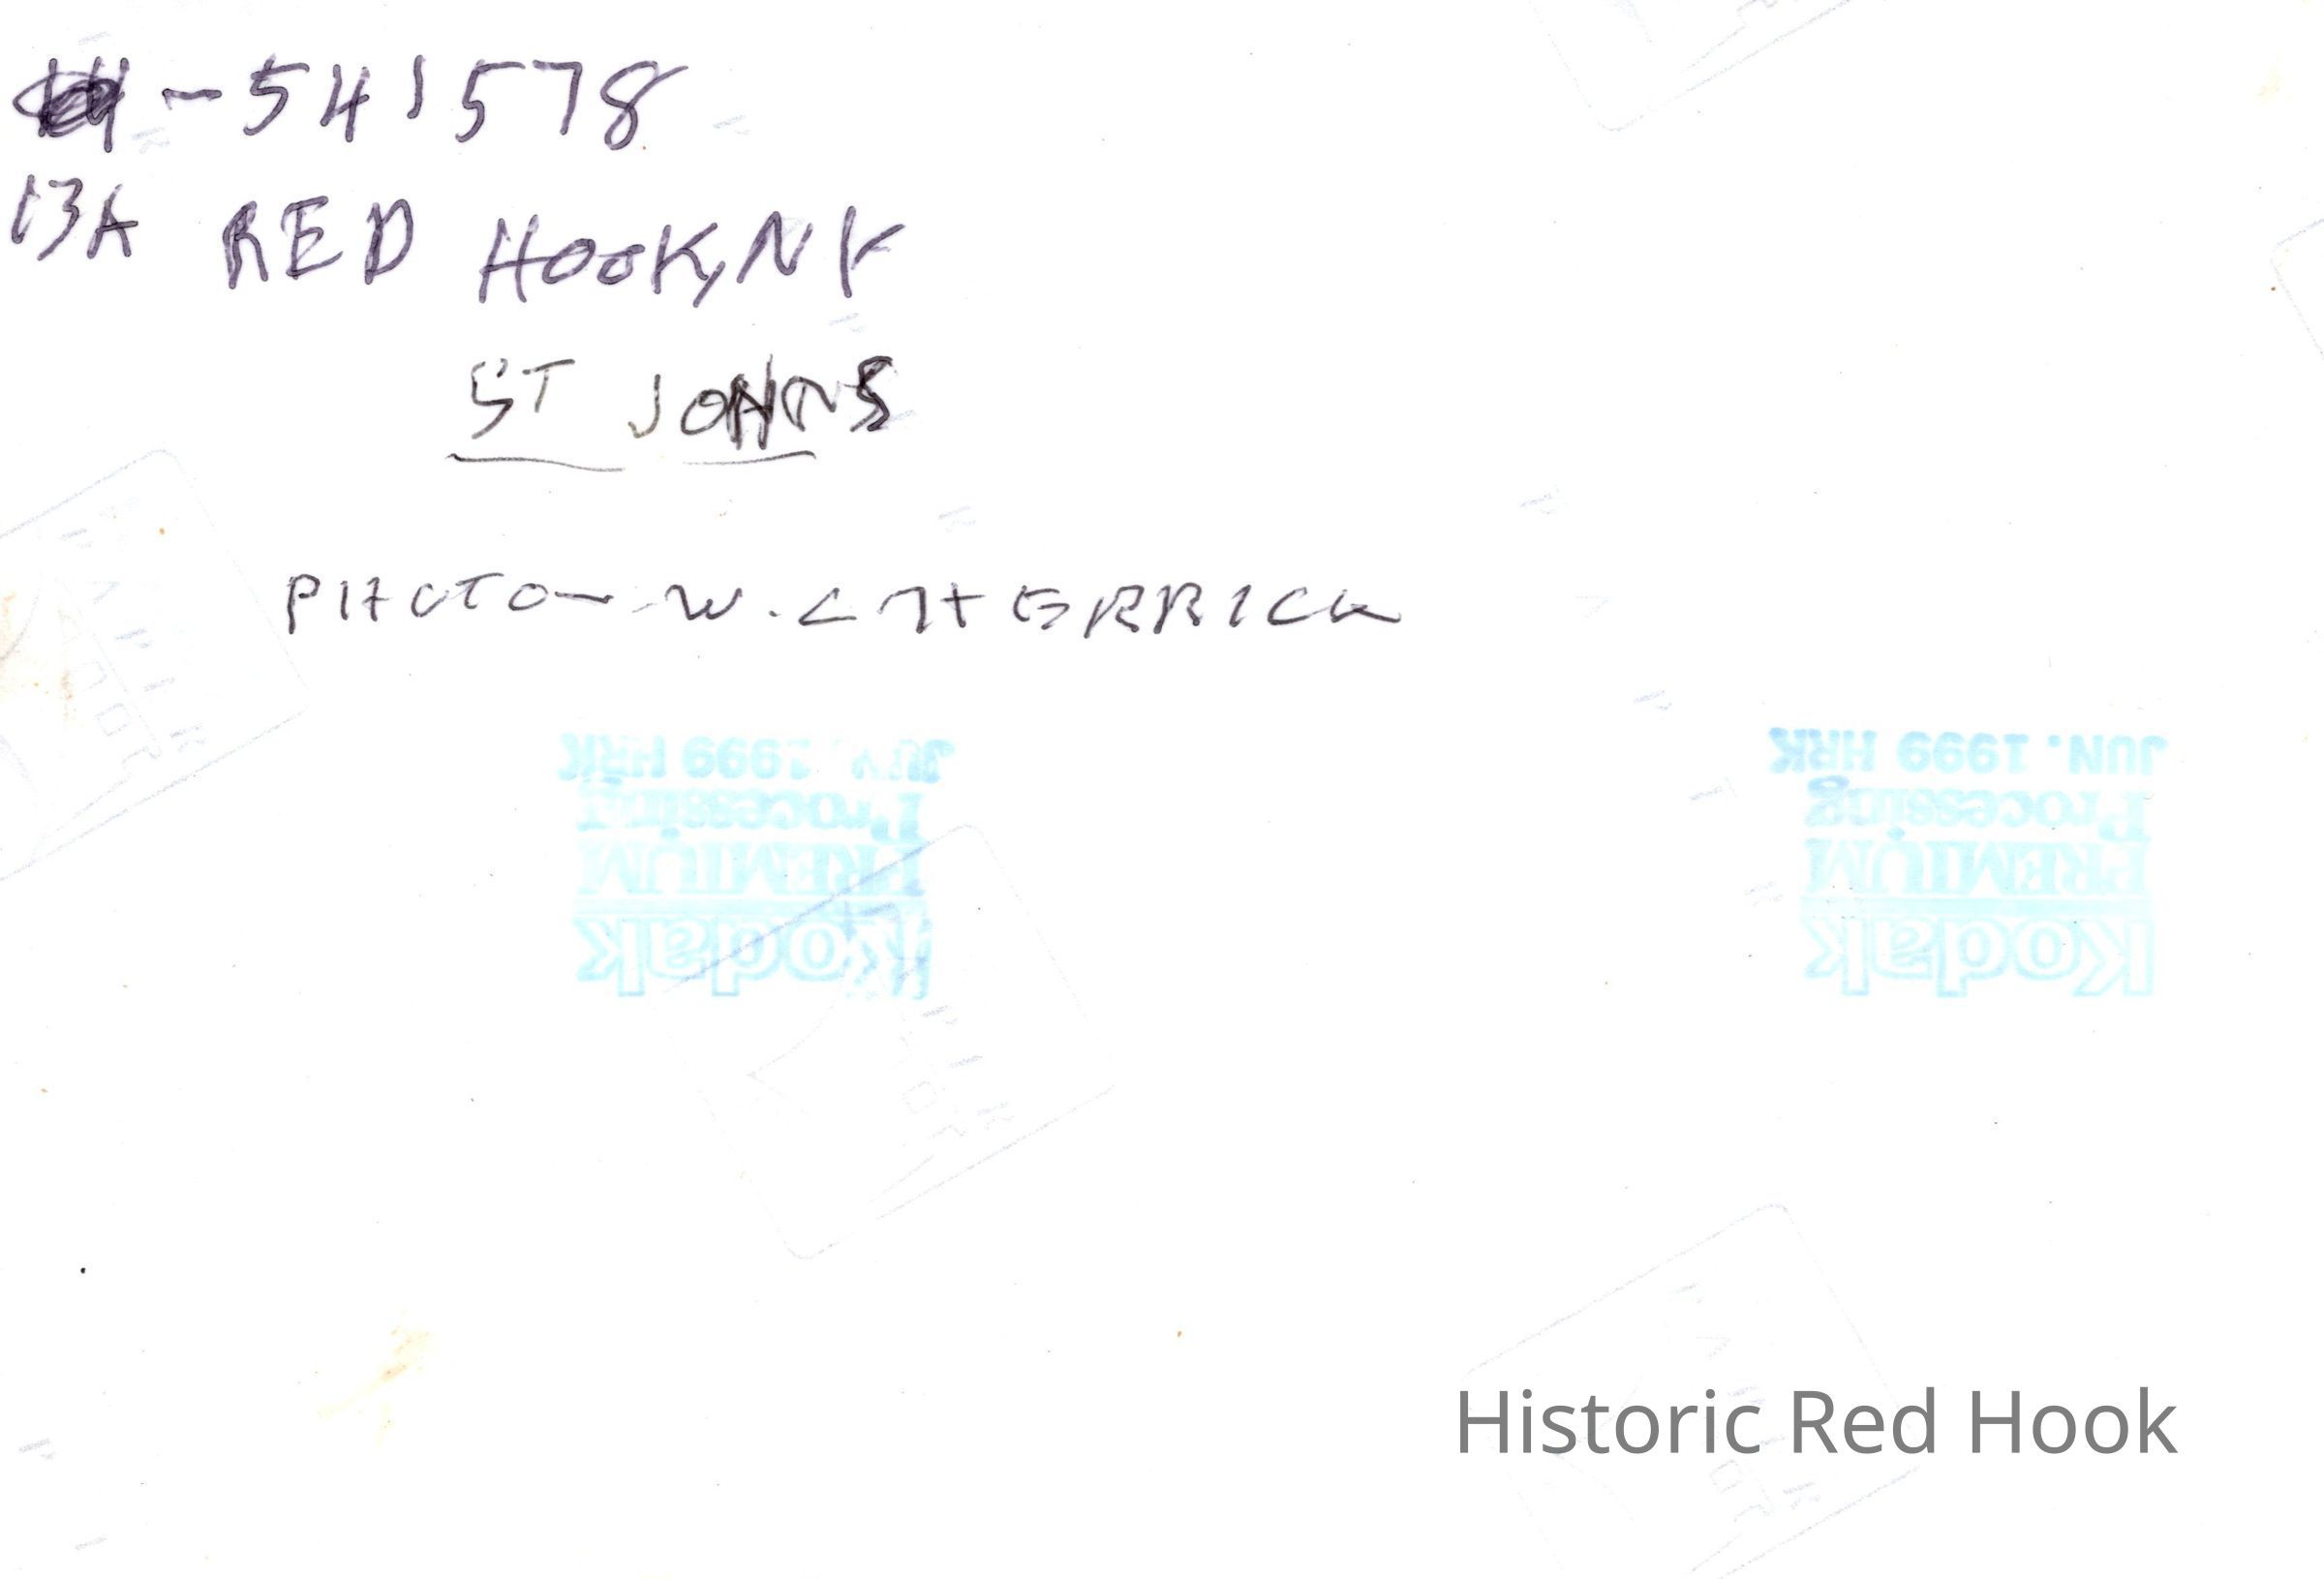 -541578
13A RED HOOK, NY
ST JOHNS
PHOTO - W.C. MTHERRICK
JUN. 1999 HRK
Processing
PREMIUM
Kodak
JUN. 1999 HRK
Processing
PREMIUM
Kodak
Historic Red Hook